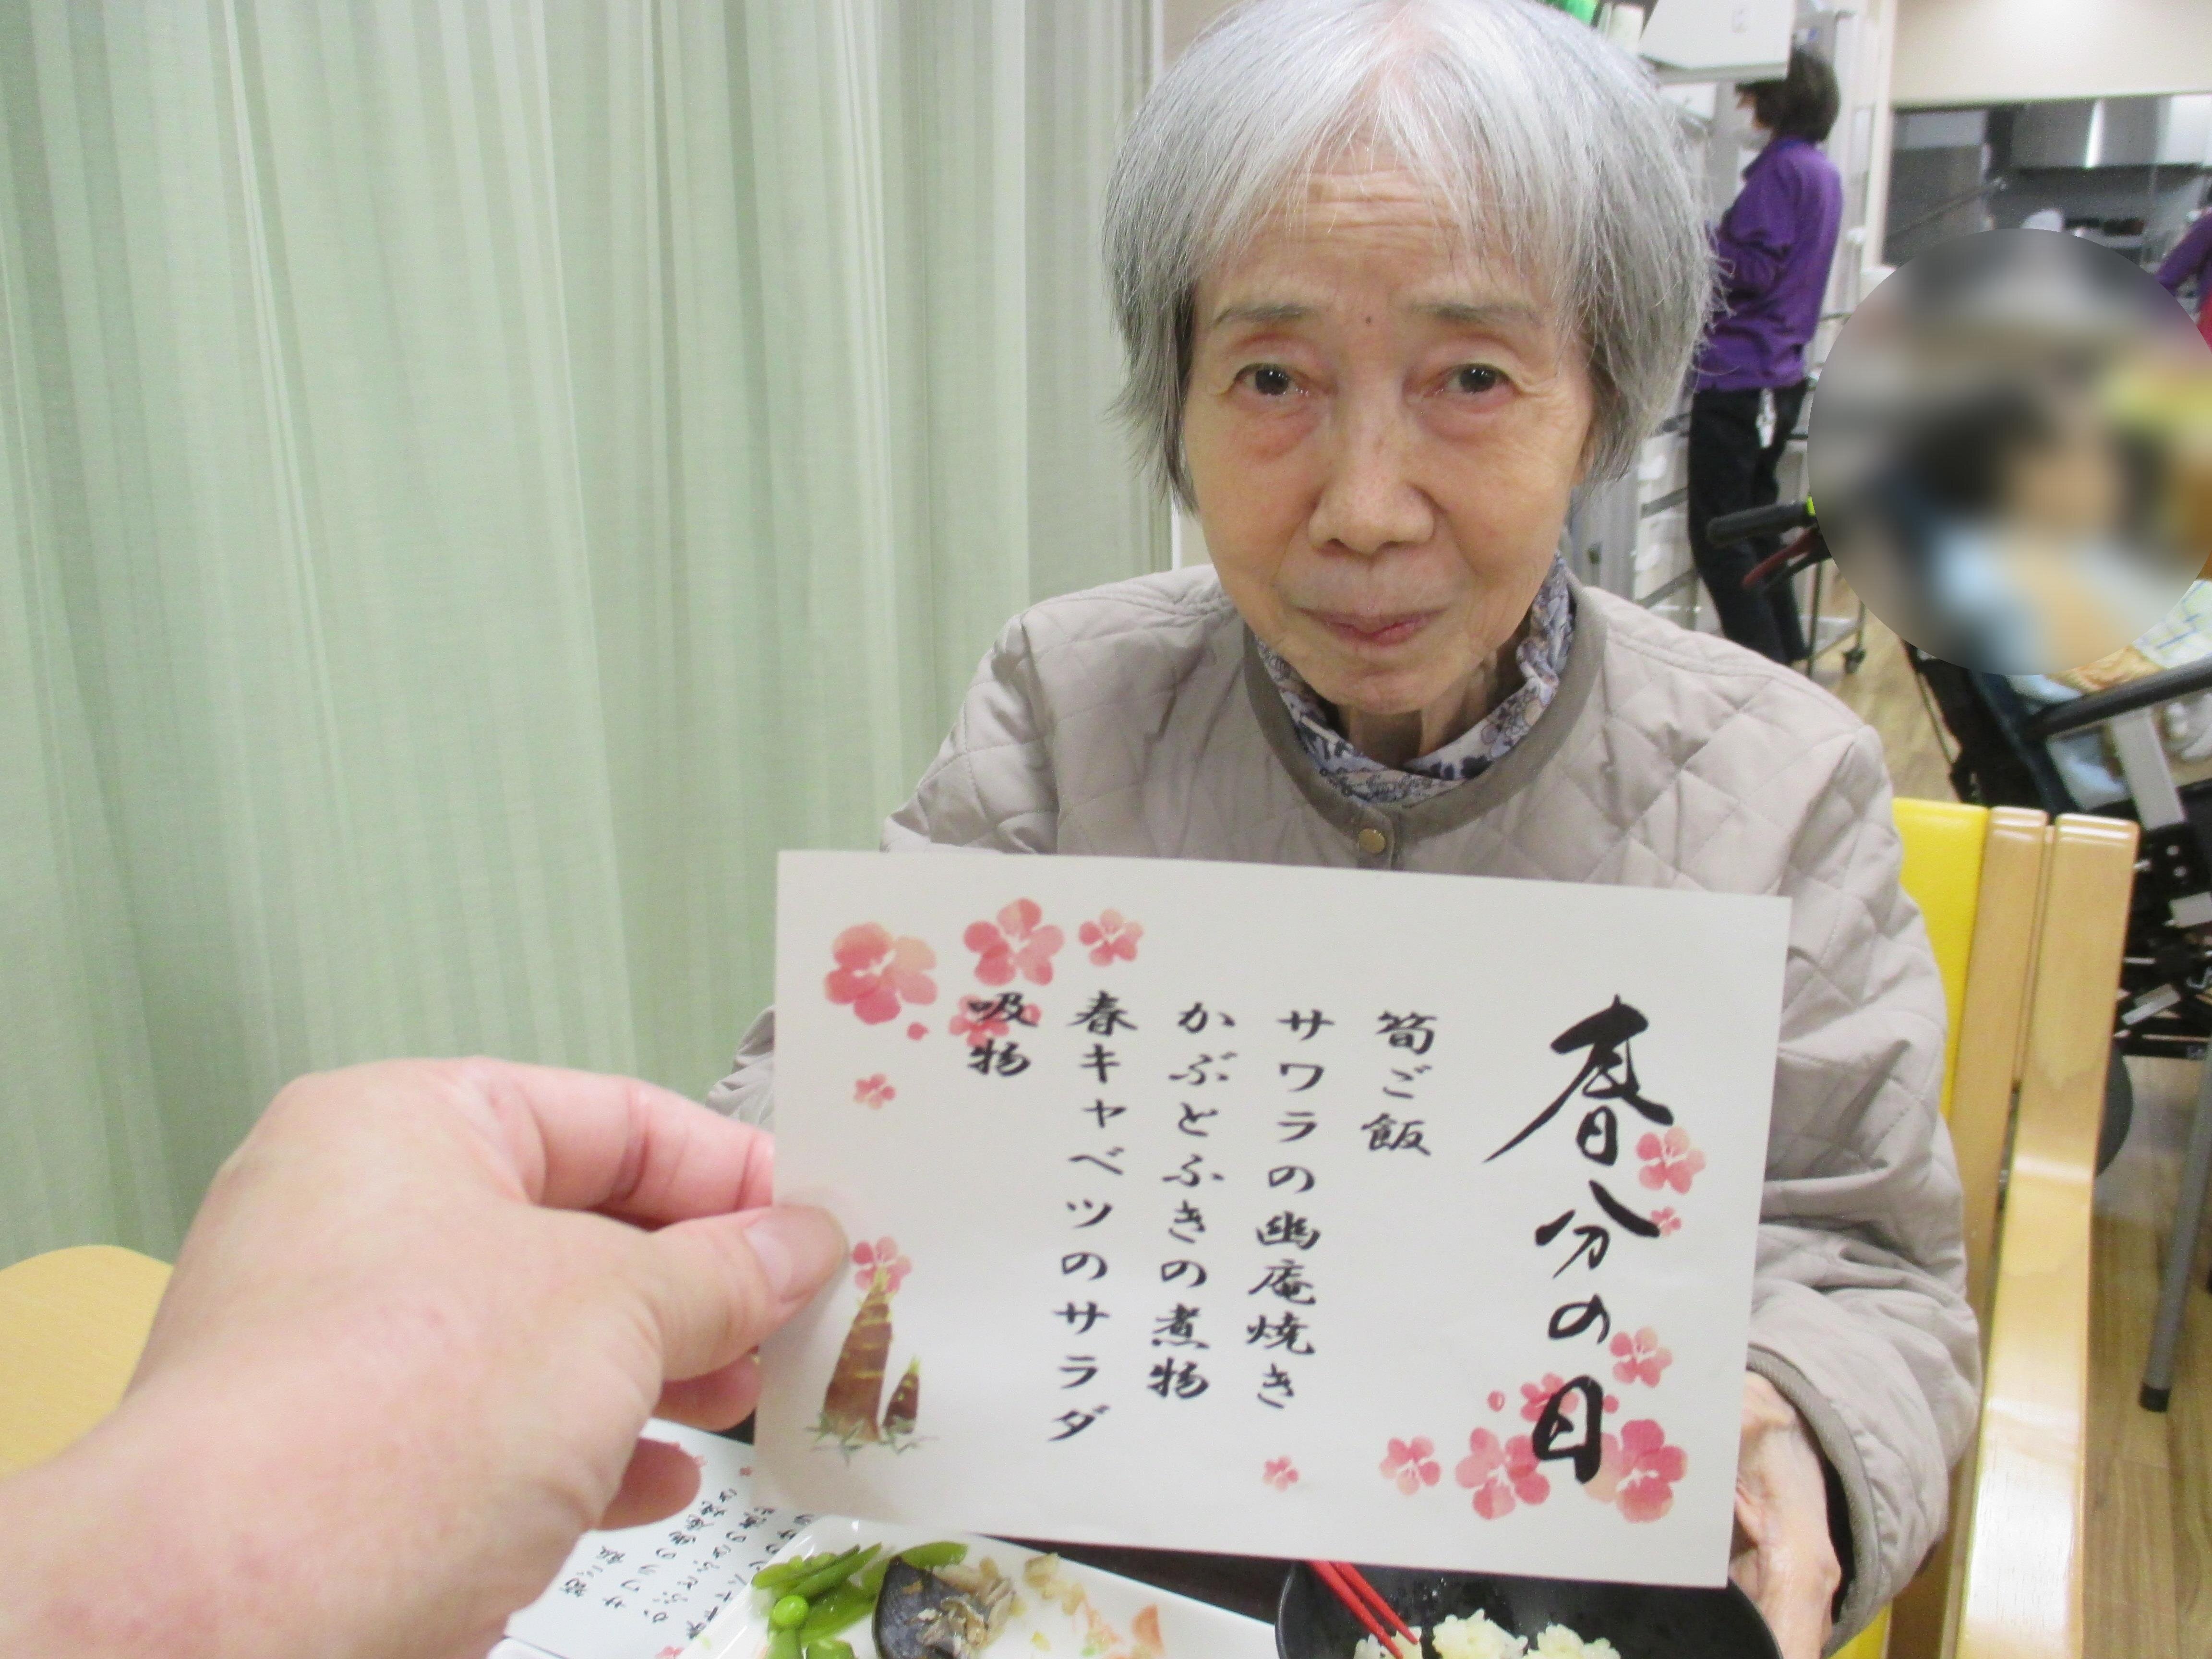 春分の日
筍ご飯
サワラの幽庵焼き
かぶとふきの煮物
春キャベツのサラダ
吸物